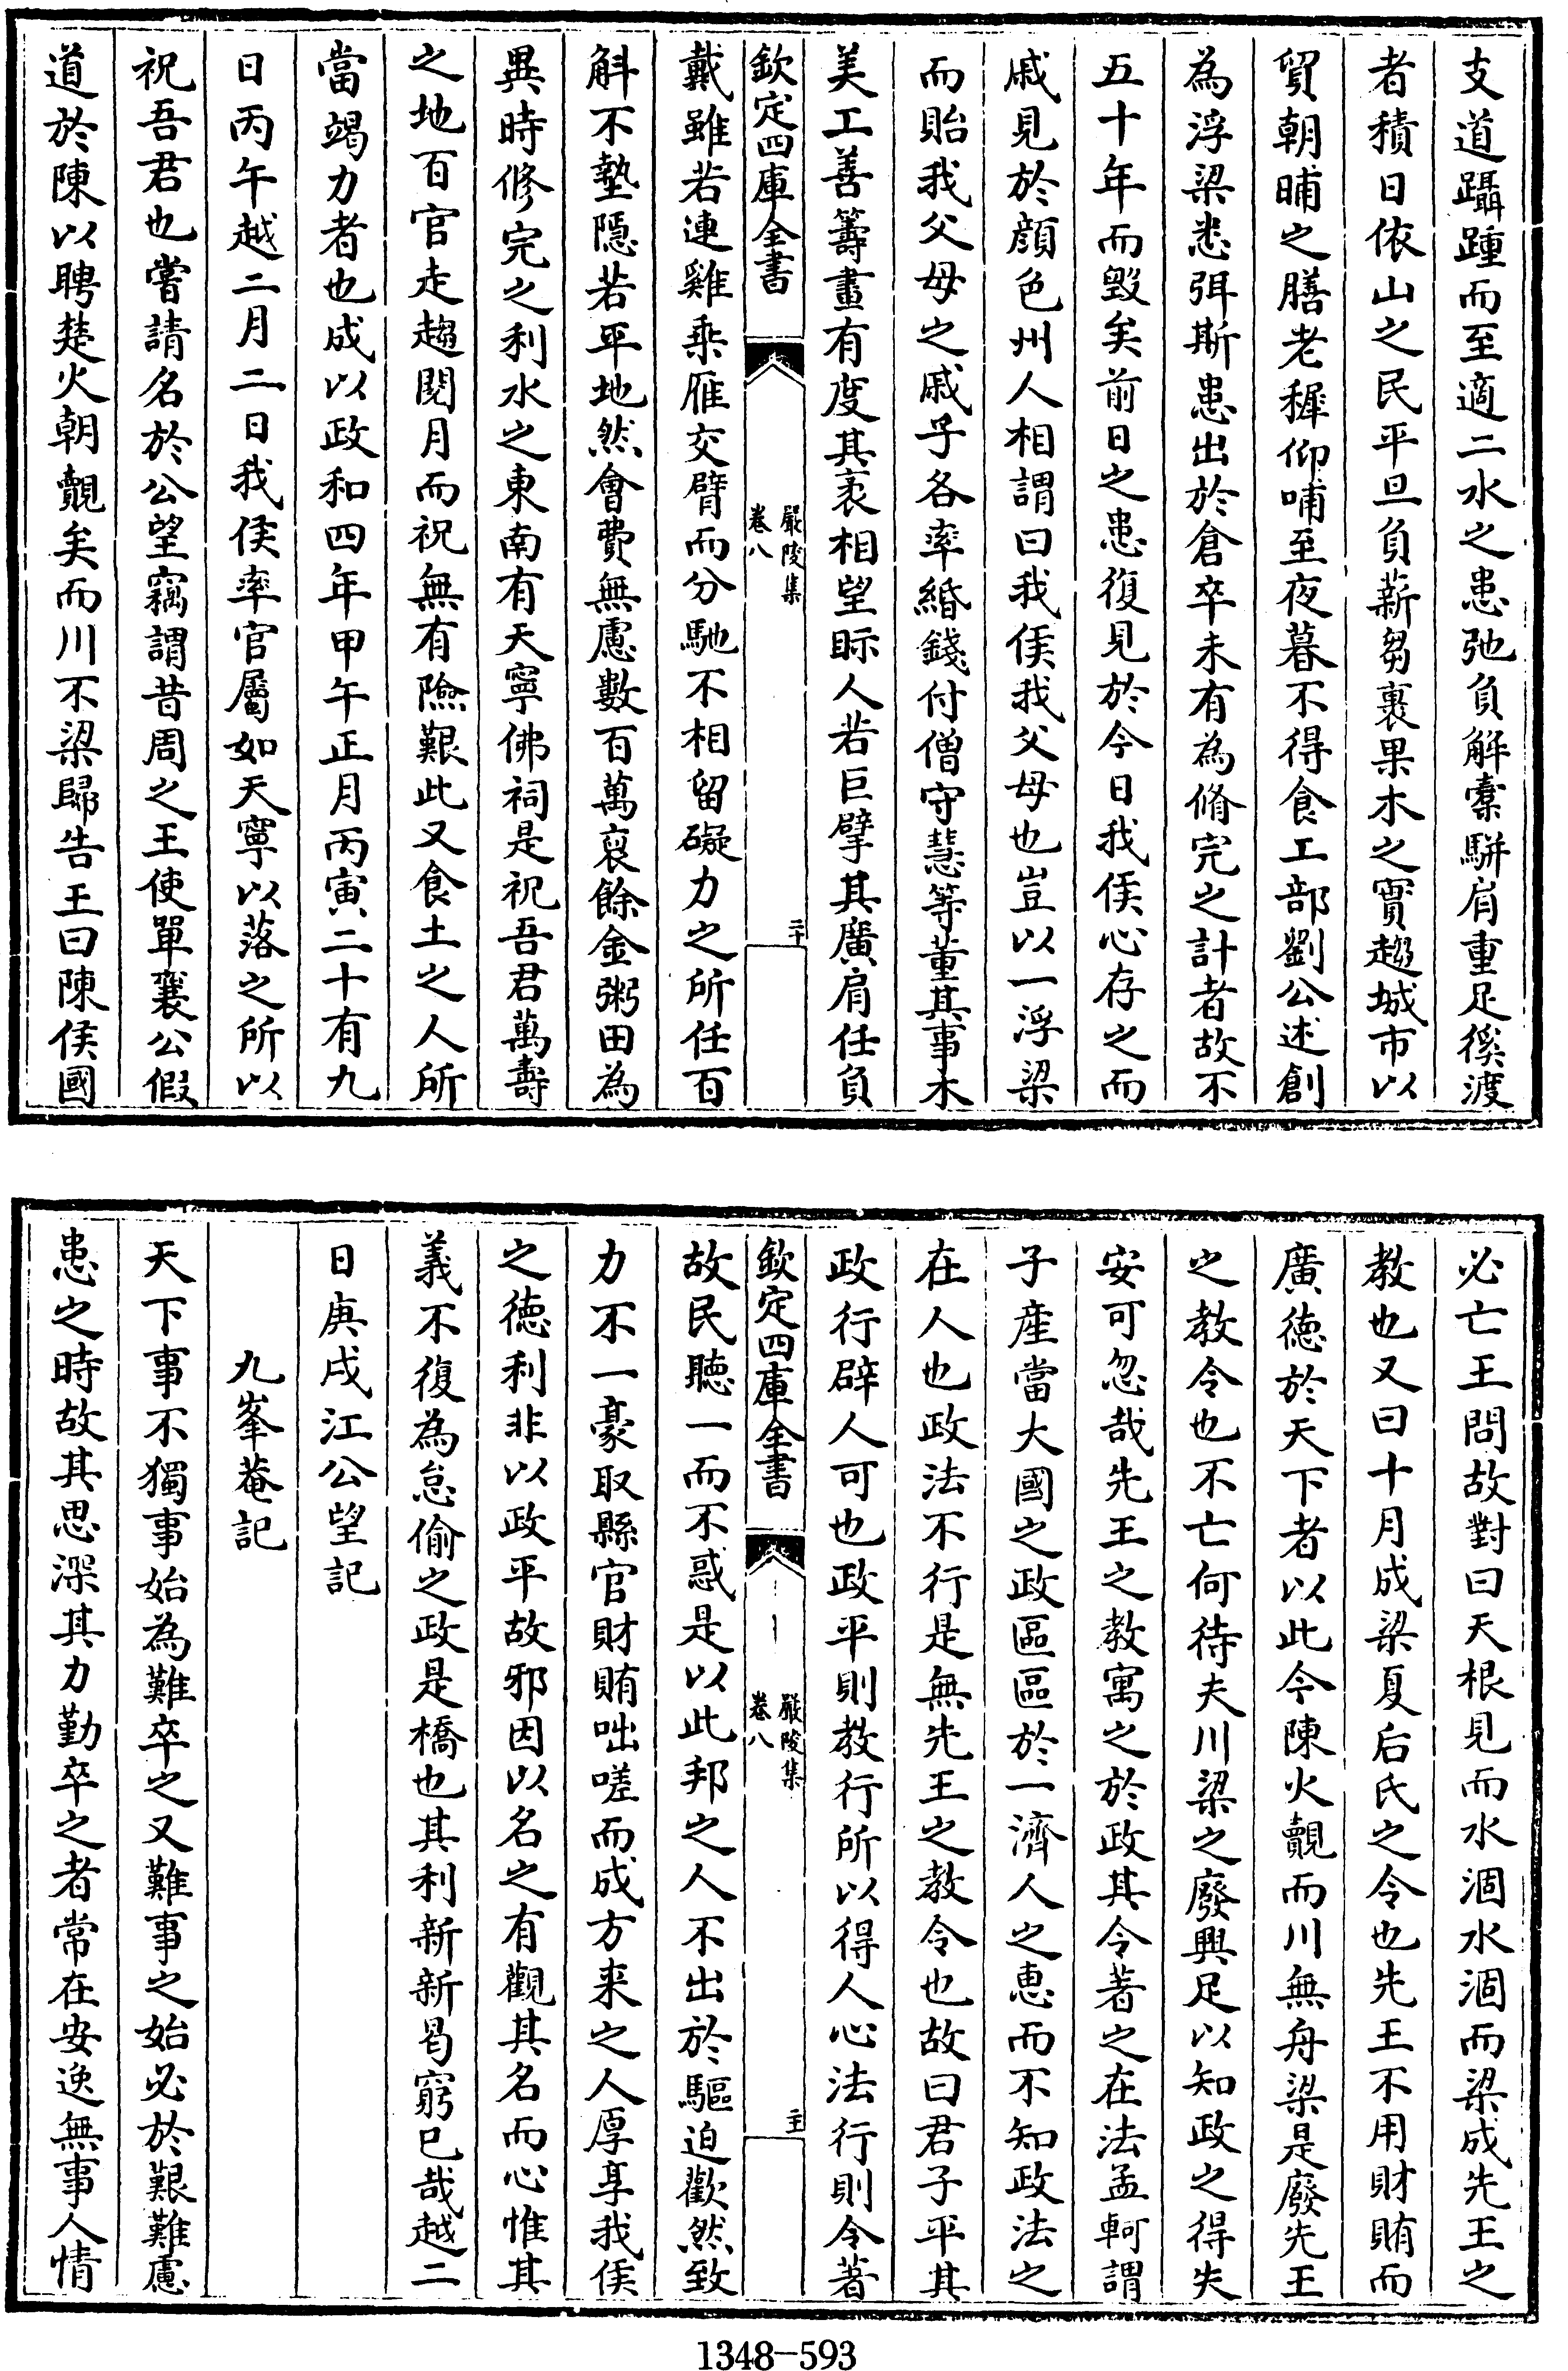 支道躡踵而至適二水之患弛負解橐駢肩重足徯渡
者積日依山之民平旦負薪芻裹果木之實趨城市以
貿朝晡之膳老穉仰哺至夜暮不得食工部劉公述創
為浮梁悉弭斯患出於倉卒未有為脩完之計者故不
五十年而毀矣前日之患復見於今日我侯心存之而
戚見於顔色州人相謂曰我侯我父母也豈以一浮梁
而貽我父母之戚乎各率緡錢付僧守慧等董其事木
美工善籌畫有度其袤相望眎人若巨擘其廣肩任負
欽定四庫全書
嚴陵集
卷八
二十
戴雖若連雞乘雁交臂而分馳不相留礙力之所任百
斛不墊隱若平地然會費無慮數百萬裒餘金粥田為
異時修完之利水之東南有天寧佛祠是祝吾君萬壽
之地百官走趨閱月而祝無有險艱此又食土之人所
當竭力者也成以政和四年甲午正月丙寅二十有九
日丙午越二月二日我侯率官屬如天寧以落之所以
祝吾君也嘗請名於公望竊謂昔周之王使單襄公假
道於陳以聘楚火朝覿矣而川不梁歸告王曰陳侯國
必亡王問故對曰天根見而水涸水涸而梁成先王之
教也又曰十月成梁夏后氏之令也先王不用財賄而
廣德於天下者以此今陳火覿而川無舟梁是廢先王
之教令也不亡何待夫川梁之廢興足以知政之得失
安可忽哉先王之教寓之於政其令著之在法孟軻謂
子產當大國之政區區於一濟人之惠而不知政法之
在人也政法不行是無先王之教令也故曰君子平其
政行辟人可也政平則教行所以得人心法行則令著
欽定四庫全書
嚴陵集
卷八
二十一
故民聽一而不惑是以此邦之人不出於驅迫歡然致
力不一豪取縣官財賄咄嗟而成方来之人厚享我侯
之德利非以政平故邪因以名之有觀其名而心惟其
義不復為怠偷之政是橋也其利新新曷窮已哉越二
日庚戌江公望記
九峯菴記
天下事不獨事始為難卒之又難事之始必於艱難慮
患之時故其思深其力勤卒之者常在安逸無事人情
1348-593